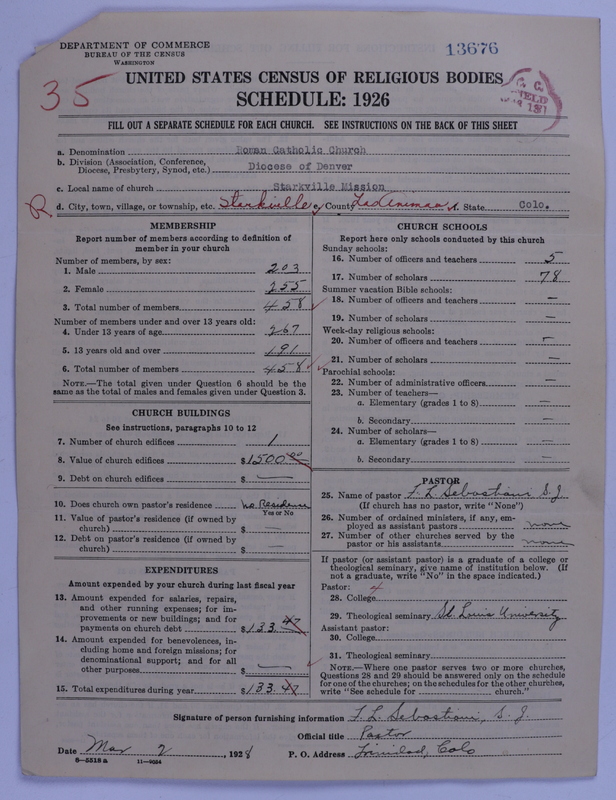 DEPARTMENT OF COMMERCE
BUREAU OF THE CENSUS
WASHINGTON
13676
35
UNITED STATES CENSUS OF RELIGIOUS BODIES
SCHEDULE: 1926
FILL OUT A SEPARATE SCHEDULE FOR EACH CHURCH. SEE INSTRUCTIONS ON THE BACK OF THIS SHEET
a. Denomination Roman Catholic Church
b. Division (Association, Conference, Diocese, Presbytery, Synod, etc.) Diocese of Denver
c. Local name of church Starkville Mission
R d. City, town, village, or township, etc. Starkville County Las Animas State Colo.
MEMBERSHIP
Report number of members according to definition of
member in your church
Number of members, by sex:
1. Male 203
2. Female 255
3. Total number of members 458
Number of members under and over 13 years old:
4. Under 13 years of age 267
5. 13 years old and over 191
6. Total number of members 458
NOTE.—The total given under Question 6 should be the
same as the total of males and females given under Question 3.
CHURCH BUILDINGS
See instructions, paragraphs 10 to 12
7. Number of church edifices 1
8. Value of church edifices $1500.00
9. Debt on church edifices $ —
10. Does church own pastor's residence No Residence
Yes or No
11. Value of pastor's residence (if owned by
church) $ —
12. Debt on pastor's residence (if owned by
church) $ —
EXPENDITURES
Amount expended by your church during last fiscal year
13. Amount expended for salaries, repairs,
and other running expenses; for im-
provements or new buildings; and for
payments on church debt $133.47
14. Amount expended for benevolences, in-
cluding home and foreign missions; for
denominational support; and for all
other purposes $ —
15. Total expenditures during year $133.47
CHURCH SCHOOLS
Report here only schools conducted by this church
Sunday schools:
16. Number of officers and teachers 5
17. Number of scholars 78
Summer vacation Bible schools:
18. Number of officers and teachers —
19. Number of scholars —
Week-day religious schools:
20. Number of officers and teachers —
21. Number of scholars —
Parochial schools:
22. Number of administrative officers —
23. Number of teachers—
a. Elementary (grades 1 to 8) —
b. Secondary —
24. Number of scholars—
a. Elementary (grades 1 to 8) —
b. Secondary —
PASTOR
25. Name of pastor F. L. Sebastiani S. J.
(If church has no pastor, write "None")
26. Number of ordained ministers, if any, em-
ployed as assistant pastors none
27. Number of other churches served by the
pastor or his assistants none
If pastor (or assistant pastor) is a graduate of a college or
theological seminary, give name of institution below. (If
not a graduate, write "No" in the space indicated.)
Pastor: 4
28. College
29. Theological seminary St. Louis University
Assistant pastor:
30. College
31. Theological seminary
NOTE.—Where one pastor serves two or more churches,
Questions 28 and 29 should be answered only on the schedule
for one of the churches; on the schedules for the other churches,
write "See schedule for church."
Signature of person furnishing information F. L. Sebastiani, S. J.
Official title Pastor
Date Mar 2, 1928 P. O. Address Trinidad, Colo
8—5518 a 11—9024